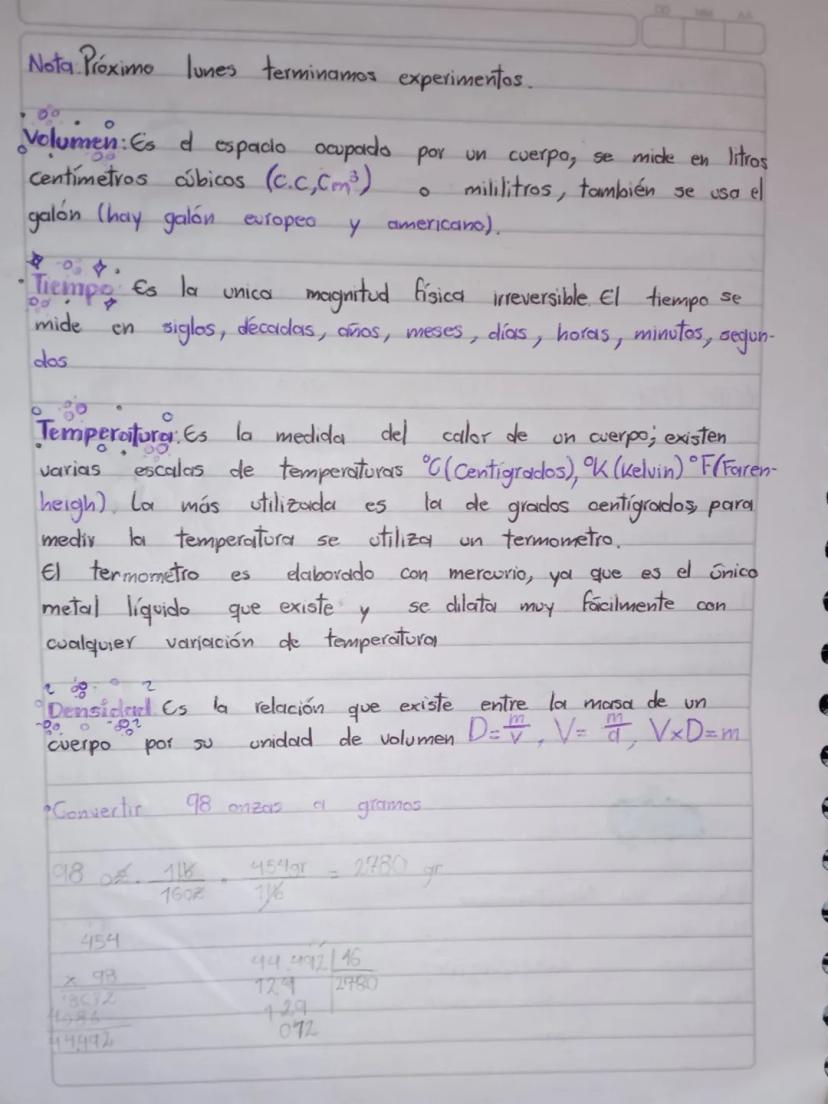 DD MM AA
Nota: Próximo lunes terminamos experimentos.
Volumen: Es el espacio ocupado por un cuerpo, se mide en litros
centímetros cúbicos (c.c, cm³) o mililitros, también se usa el
galón (hay galón europeo y americano).
Tiempo: Es la unica magnitud física irreversible. El tiempo se
mide en siglos, décadas, años, meses, días, horas, minutos, segun-
dos
Temperatura: Es la medida del calor de un cuerpo; existen
varias escalas de temperaturas °C (Centigrados), °K (Kelvin) °F (Faren-
heigh). La más utilizada es la de grados centígrados, para
medir la temperatura se utiliza un termometro.
El termometro es elaborado con mercurio, ya que es el único
metal líquido que existe y se dilata muy fácilmente con
cualquier variación de temperatura
Densidad Es la relación que existe entre la masa de un
cuerpo por su unidad de volumen D = m/v, V = m/d, V x D = m
• Convertir 98 onzas a gramos
98 oz. 1lb/16oz . 454gr/1lb = 2780 gr
454
x 98
3632
4086
44492
44.492 | 16
124 2780
129
012